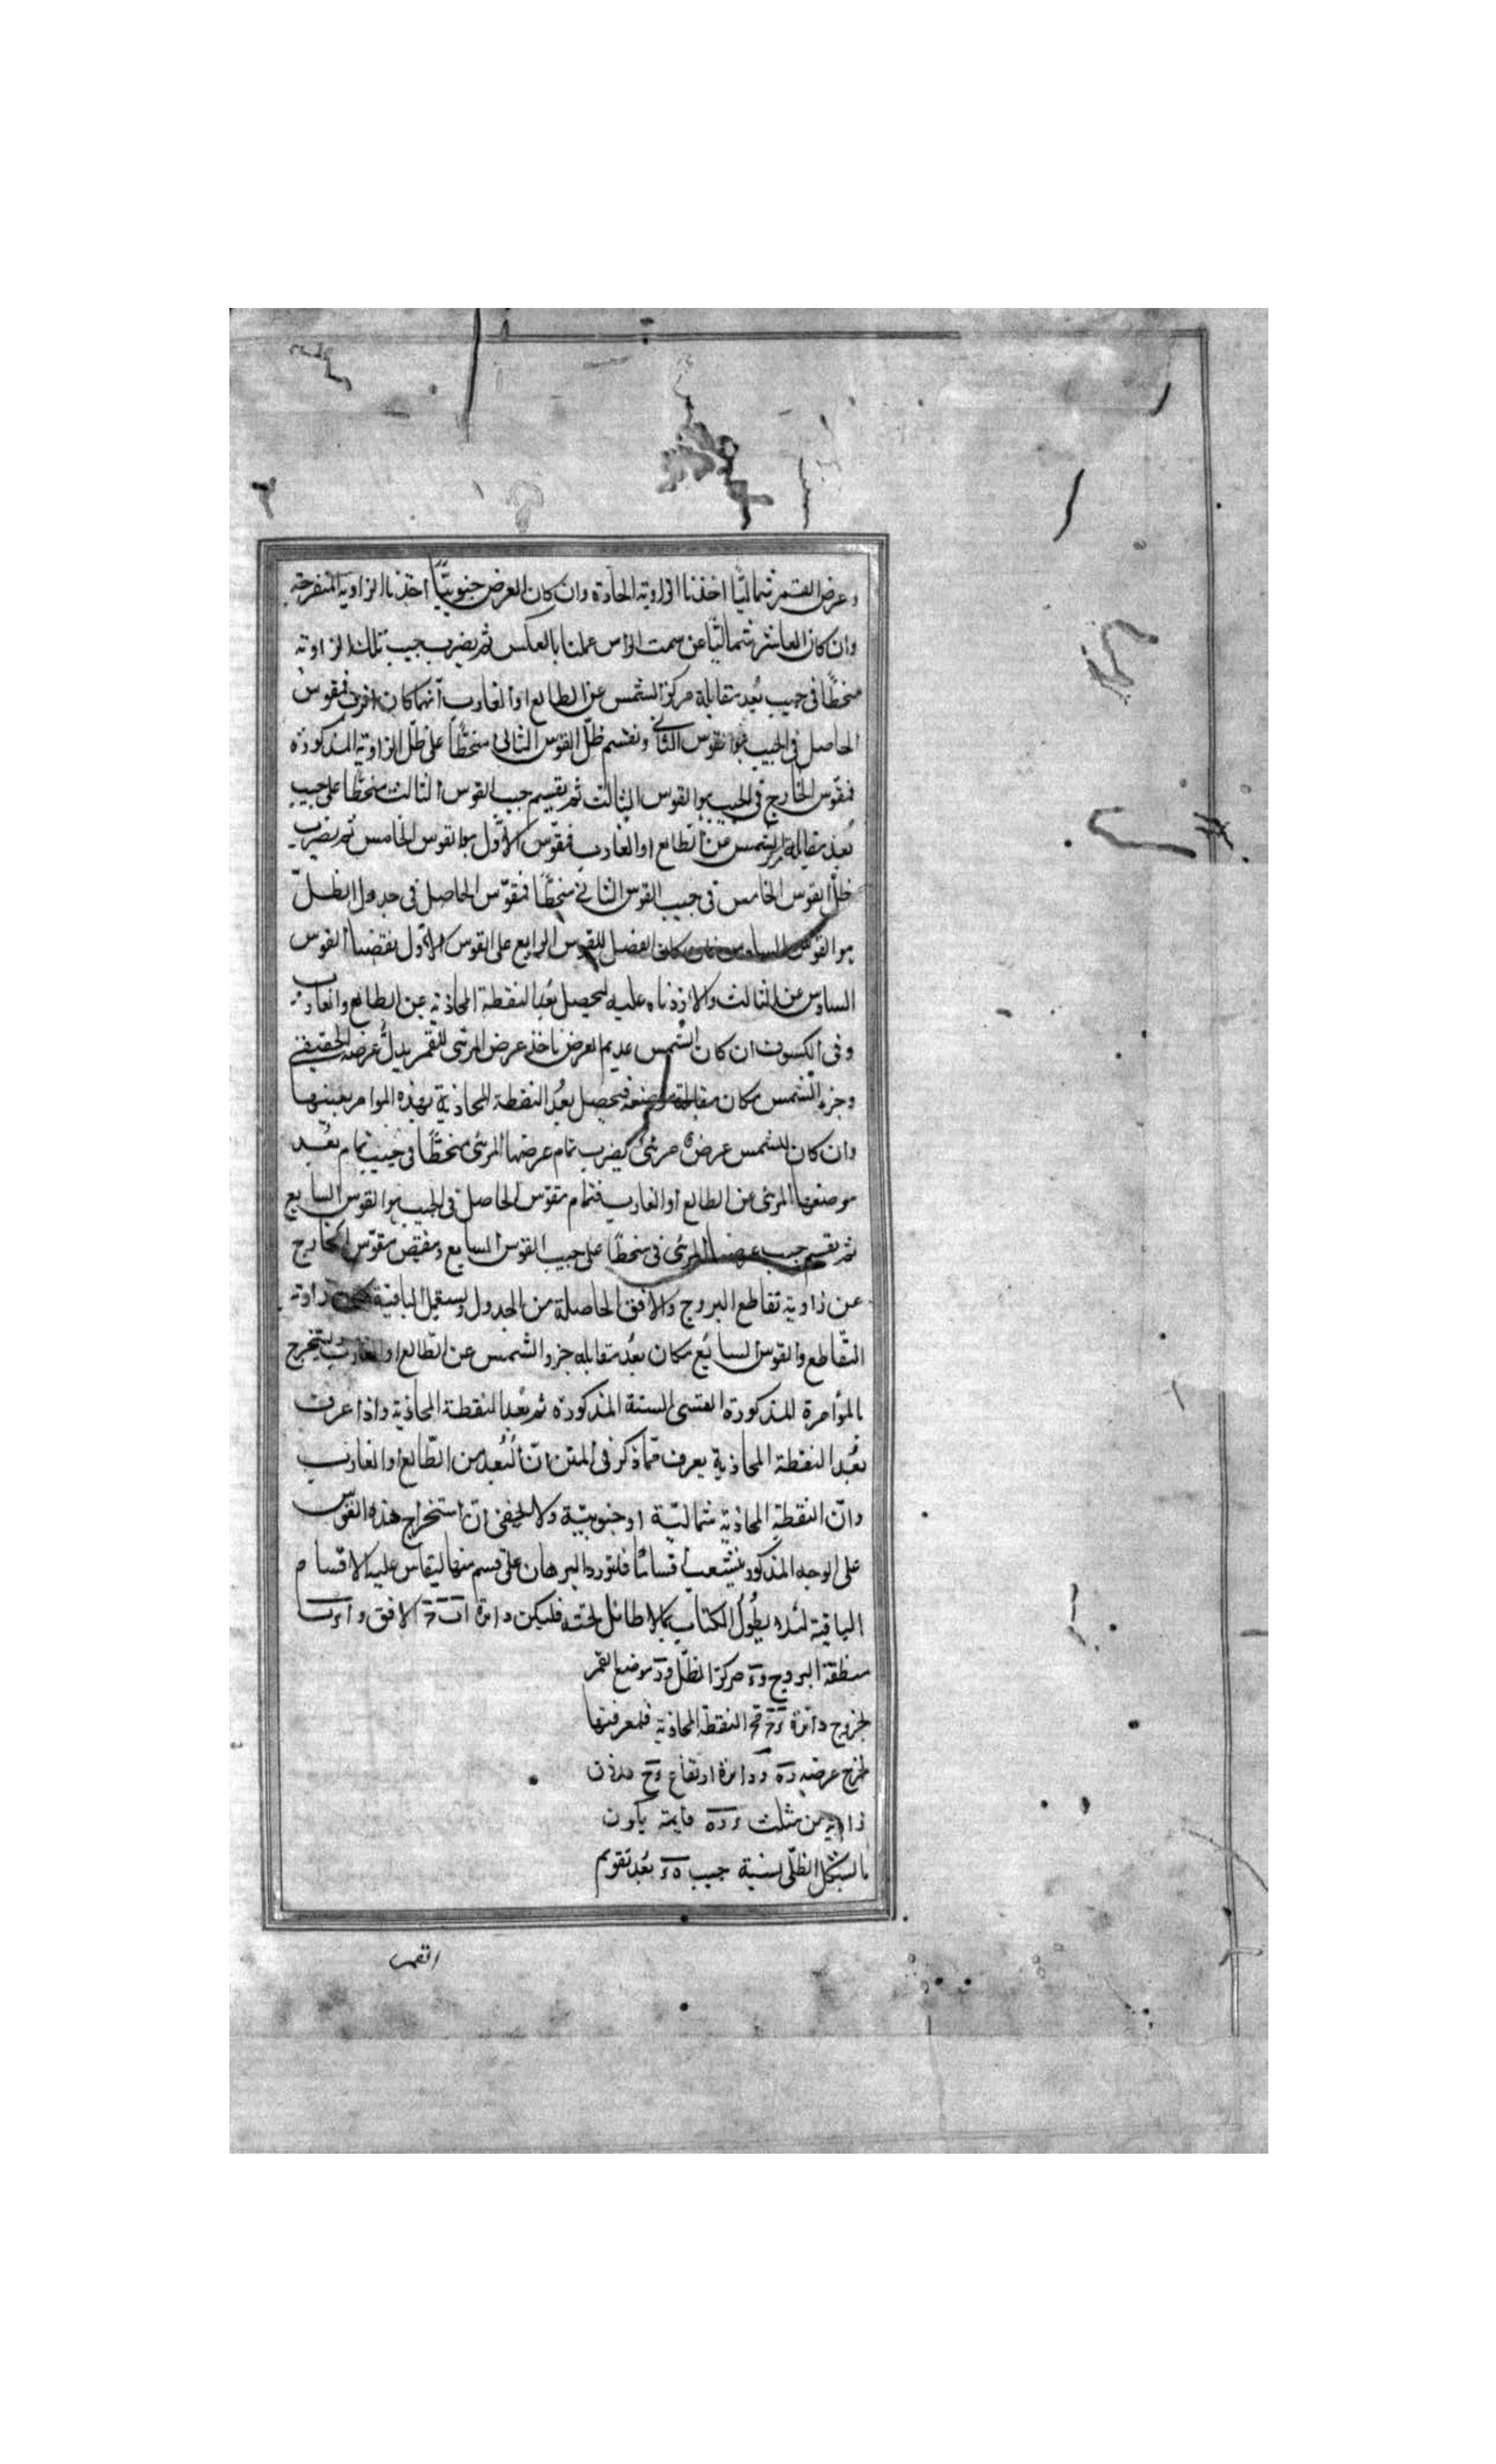 وعرض القمر شماليًّا اخذنا الزاوية الحادة وان كان العرض جنوبيًّا اخذنا الزاوية المنفرجة
وان كان العاشر شماليًّا عن سمت الراس عملنا بالعكس ثم يضرب جيب تلك الزاوية
منحطًّا فى جيب بُعد مقابلة مركز الشمس عن الطالع او الغارب ايّهما كان اقرب فمقوس
الحاصل فى الجيب هو القوس الثانى ونقسم ظلّ القوس الثانى منحطًّا على ظلّ الزاوية المذكورة
فمقوّس الخارج فى الجيب هو القوس الثالث ثم يقسم جيب القوس الثالث منحطًّا على جيب
بُعد مقابلة الشمس عن الطالع او الغارب فمقوّس الاوّل هو القوس الخامس ثم يضرب
ظلّ القوس الخامس فى جيب القوس الثانى منحطًّا فمقوّس الحاصل فى جدول الظلّ
هو القوس السادس فان كان الفضل للقوس الرابع على القوس الاوّل نقصنا القوس
السادس عن الثالث والا زدناه عليه ليحصل بُعد النقطة المحاذية عن الطالع والغارب
وفى الكسوف ان كان الشمس عديم العرض ناخذ عرض المرئى للقمر بدل عرضه الحقيقى
وجزء الشمس مكان مقابلة موضعه فيحصل بعد النقطة المحاذية بهذه الموامر بعينها
وان كان للشمس عرض مرئى يضرب تمام عرضها المرئى منحطًّا فى جيب تمام بُعد
موضعها المرئى عن الطالع او الغارب فتمام مقوّس الحاصل فى الجيب هو القوس السابع
ثم نقسم جيب عرضها المرئى فى منحطًّا على جيب القوس السابع ونقص مقوّس الخارج
عن زاوية تقاطع البروج والافق الحاصلة من الجدول ويستعمل الباقية زاوية
التقاطع والقوس السابع مكان بُعد مقابلة جزو الشمس عن الطالع او الغارب ليخرج
بالمؤامرة المذكورة القسى الستة المذكورة ثم بُعد النقطة المحاذية واذا عرف
بُعد النقطة المحاذية يعرف ممّا ذكر فى المتن انّ البُعد من الطّالع او الغارب
وانّ النقطة المحاذية شماليّة او جنوبيّة ولا يخفى ان استخراج هذه القوس
على الوجه المذكور ينشعب اقسامًا فلنورد البرهان على قسم منها ليقاس عليه الاقسام
الباقية لئلا يطول الكتاب بما لا طائل تحته فليكن دائرة الافق
منطقة البروج و مركز الظلّ و موضع القمر
دائرة النقطة المحاذية فلمعرفتها
عرضه دائرة ارتفاع
زاوية من مثلث قايمة يكون
بالشكل الظلّى نسبة جيب بُعد تقويم
القمر